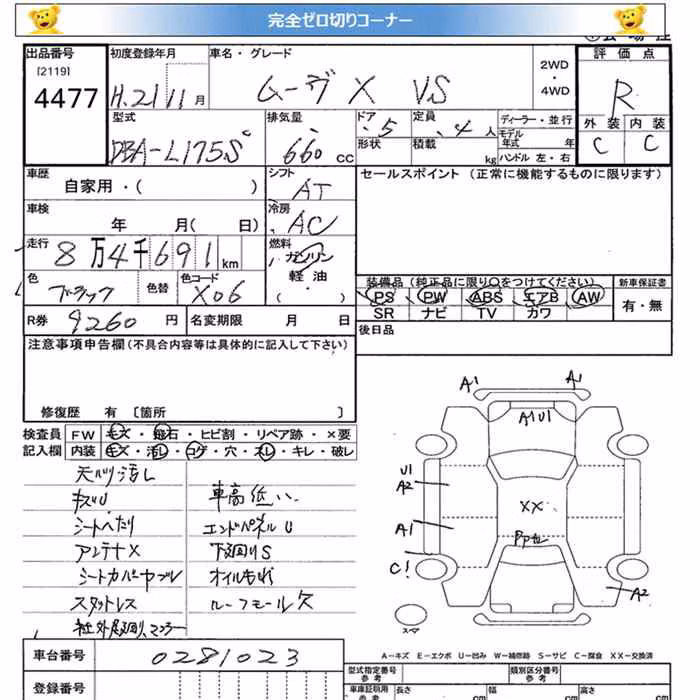 完全ゼロ切りコーナー
出品番号 初度登録年月 車名・グレード 評価点
[2119]
4477 H.21 11月 ムーヴ X VS 2WD・4WD R
型式 排気量 ドア 定員 ディーラー・並行 外装 内装
DBA-L175S 660cc 5 4人 モデル年式 年 C C
形状 積載 kg ハンドル 左・右
車歴 シフト セールスポイント (正常に機能するものに限ります)
自家用・( ) AT
車検 冷房
年 月( 日) AC
走行 燃料
8万4千691km ガソリン
軽油
色 色替 色コード ( ・ )
ブラック X06
装備品 (純正品に限り○をつけてください) 新車保証書
PS PW ABS エアB AW 有・無
SR ナビ TV カワ
R券 9260円 名変期限 月 日 後日品
注意事項申告欄(不具合内容等は具体的に記入して下さい)
修復歴 有 〔箇所 〕
検査員 FW キズ・飛石・ヒビ割・リペア跡・×要
記入欄 内装 キズ・汚レ・コゲ・穴・スレ・キレ・破レ
天张汚し
キズU 車高低い
シートへたり エンドパネルU
アンテナX 下廻りS
シートカバーヤブレ オイルもれ
スタットレス ルーフモール欠
社外足廻り、マフラー
A1 A1
A1U1
U1
A2
XX
A1
C!
A2
スペア
A－キズ E－エクボ U－凹み W－補修跡 S－サビ C－腐食 XX－交換済
車台番号 0281023 型式指定番号 参考 類別区分番号 参考
登録番号 車庫証明用 参考 長さ cm 幅 cm 高さ cm